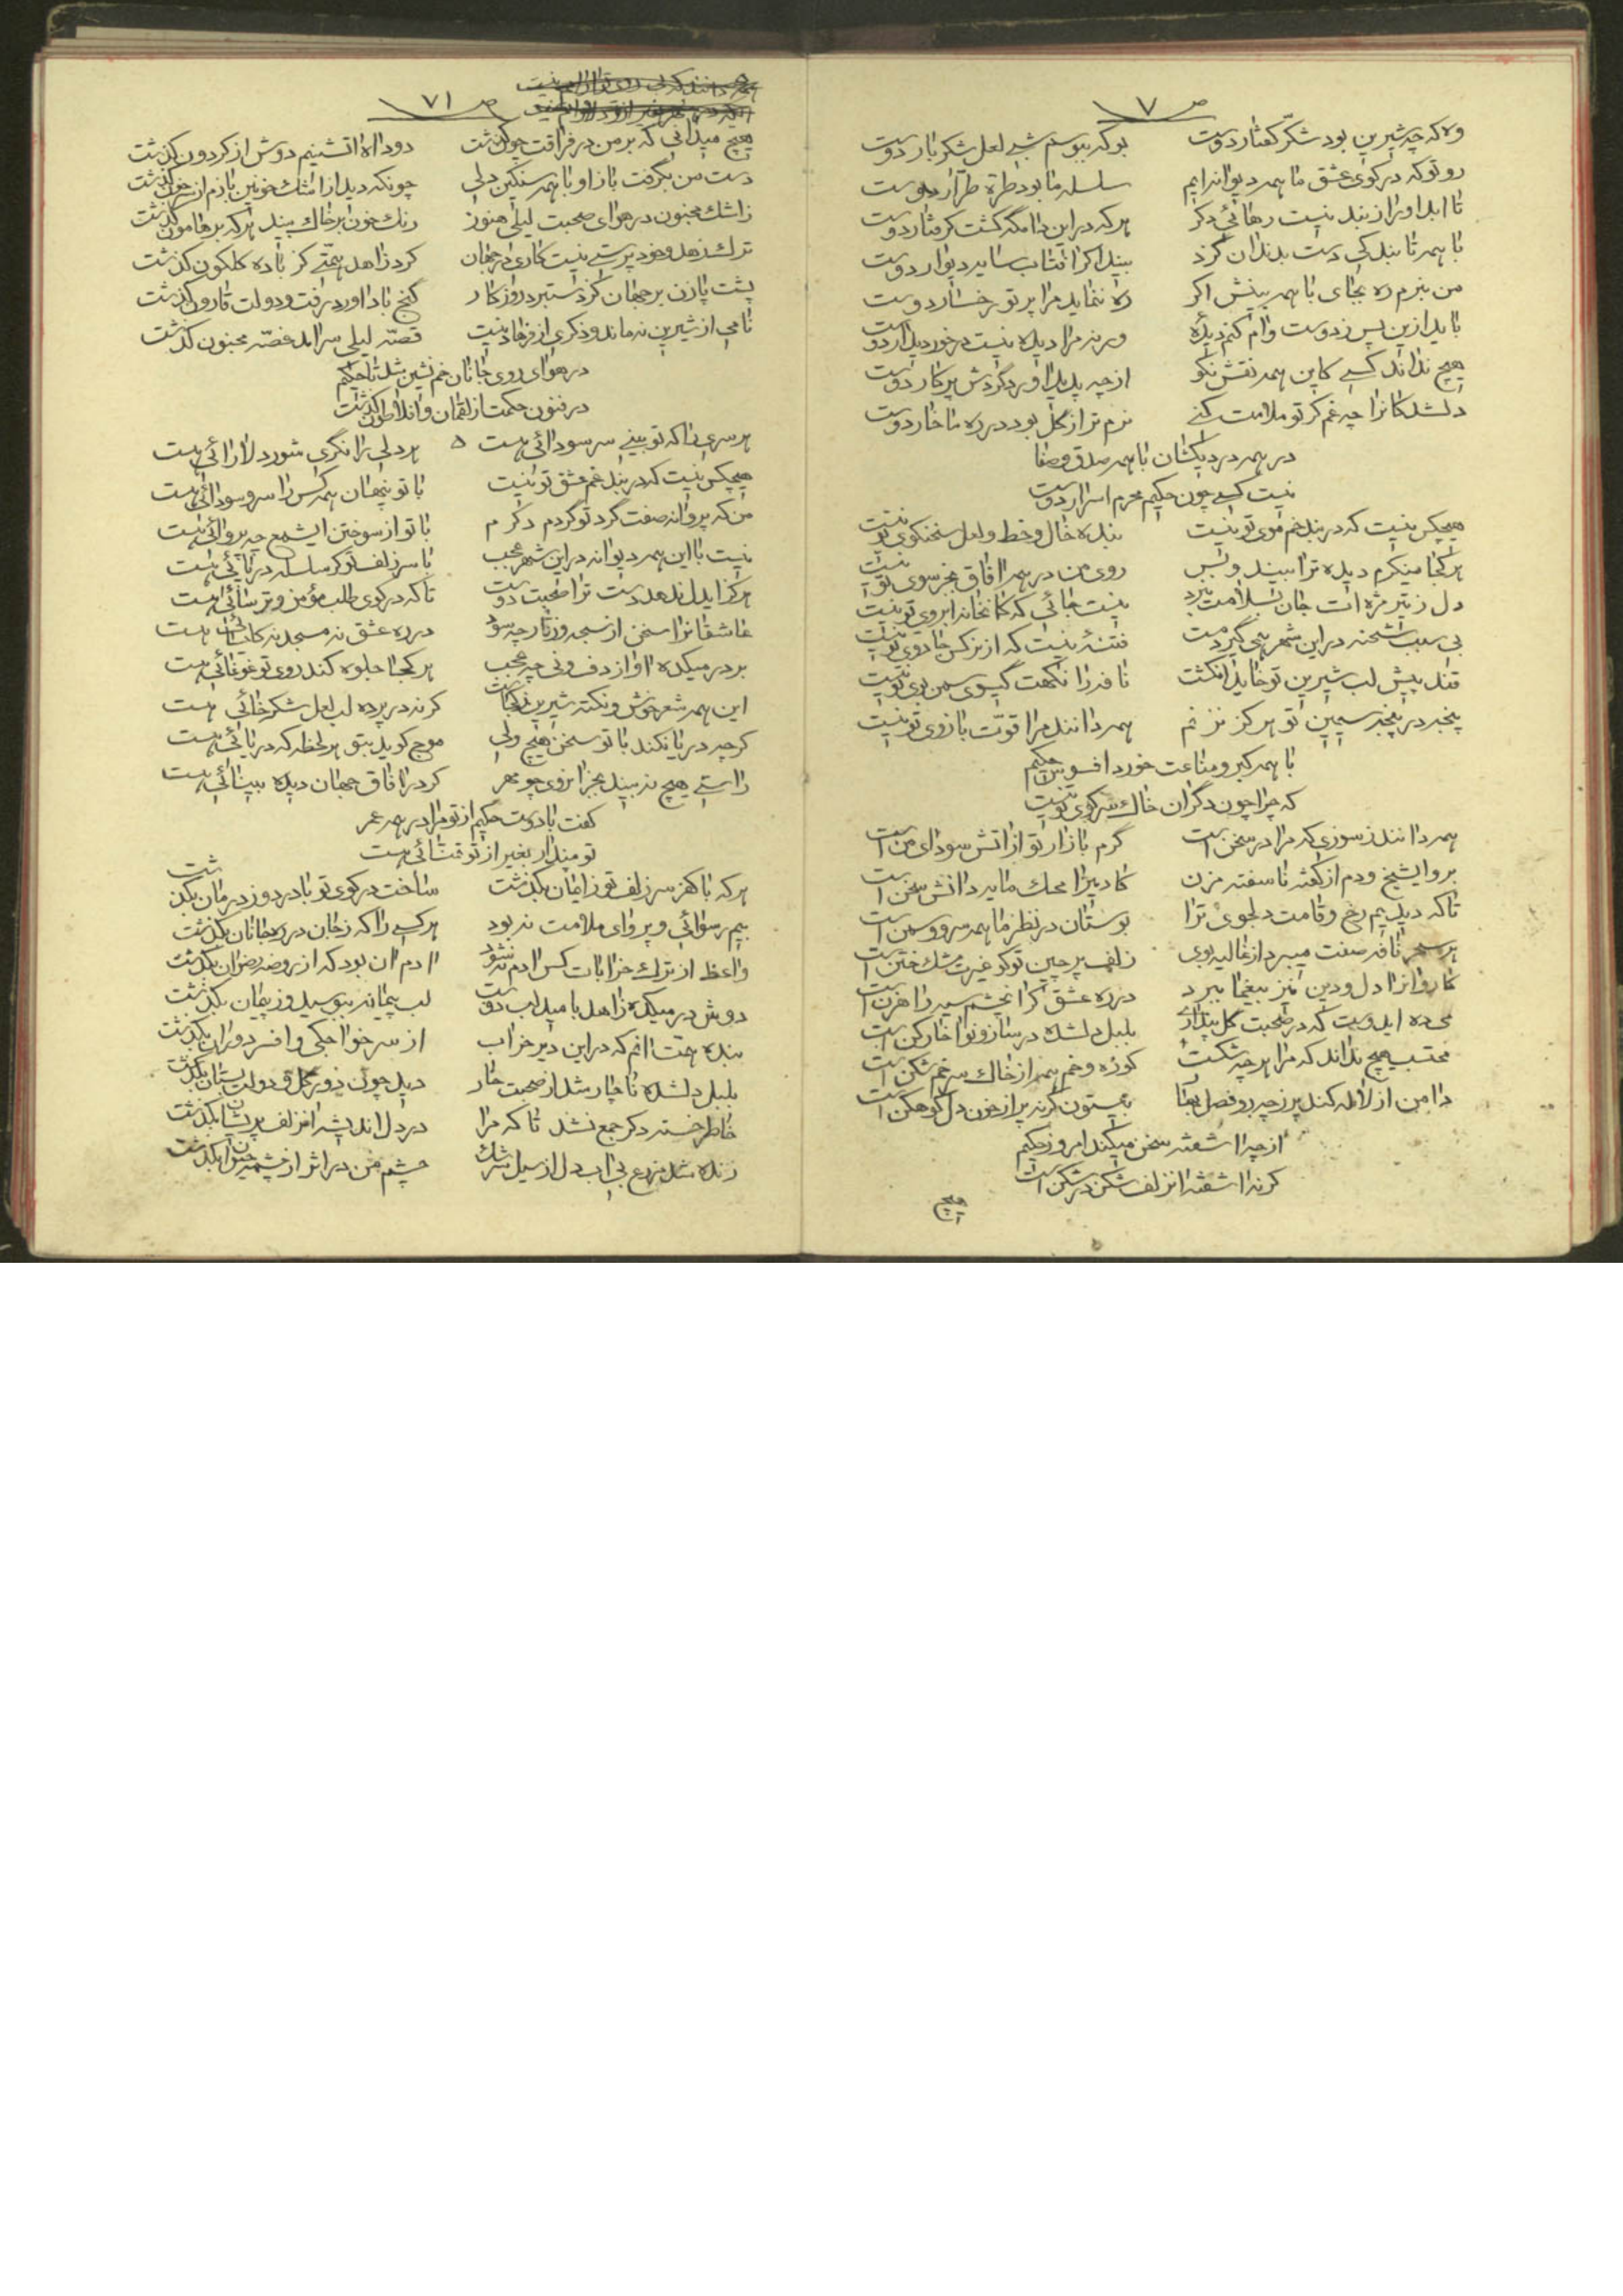 ص ٧٠
وه که چه شیرین بود شکّر کفتار دوست بو که ببوسم شبی لعل شکر بار دوست
رو تو که در کوی عشق ما همه دیوانه ایم سلسله ما بود طره طرّار دوست
تا ابد او را ز بند نیست رهائی دکر هر که در این دامگه گشت کرفتار دوست
با همه تا بندکی دست بدندان کزد بیند اکر افتاب سایه دیوار دوست
من نبرم ره بجای با همه بینش اکر ره ننماید مرا پرتو رخسار دوست
باید ازین پس ز دوست وام کنم دیده ورنه مرا دیده نیست درخور دیدار دوست
هیچ نداند کسی کاین همه نقش نکو از چه پدید اورد گردش پرکار دوست
دلشدکانرا چه غم کر تو ملامت کنی نرم تر از گل بود در ره ما خار دوست
در همه دردیکشان با همه صدق و صفا
نیست کسی چون حکیم محرم اسرار دوست
هیچکس نیست که در بند خم موی تو نیست بنده خال و خط و لعل سخنکوی تو نیست
هر کجا مینکرم دیده ترا بیند و بس روی من در همه افاق بجز سوی تو نیست
دل ز تیر مژه ات جان بسلامت نبرد نیست جائی که کمانخانه ابروی تو نیست
بی سبب شحنه در این شهر پی کیر دست فتنهٔ نیست که از نرکس جادوی تو نیست
قند پیش لب شیرین تو خاید انکشت نافه را نکهت گیسوی سمن بوی تو نیست
پنجه در پنجه سیمین تو هرکز نزنم همه دانند مرا قوّت بازوی تو نیست
با همه کبر و مناعت خورد افسوس حکیم
که چرا چون دگران خاک سر کوی تو نیست
همه دانند ز سوزی که مرا در سخن است گرم بازار تو از اتش سودای من است
برو ایشیخ و دم از نکته ناسفته مزن کادمیرا محک مایه دانش سخن است
تا که دیدیم رخ و قامت دلجوی ترا بوستان در نظر ما همه سرو و سمن است
هر سحر نافه صفت میبرد از غالیه بوی زلف پر چین تو کو غیرت مشک ختن است
کاروانرا دل و دین نیز بیغما ببرد در ره عشق کر ان چشم سیه راهزن است
می ده ایدوست که در صحبت گل پنداری بلبل دلشده در ساز و نوا خارکن است
محتسب هیچ نداند که مرا هر چه شکست کوزه و خم همه از خاک سر خم شکن است
دامن از لاله کند پر ز چه رو فصل بهار بیستون کرنه پر از خون دل کوهکن است
از چه اشفته سخن میکند امروز حکیم
کرنه اشفته ان زلف شکن در شکن است
هیچ
ص ٧١
هیچ میدانی که بر من در فراقت چون کذشت دود اه اتشینم دوش از کردون کذشت
دست من بگرفت باز او با همه سنکین دلی چونکه دید از اشک خونین بازم از سر خون کذشت
ز اشک مجنون در هوای صحبت لیلی هنوز رنک خون بر خاک بیند هر که بر هامون کذشت
ترک زهد و خود پرستی نیست کاری در جهان کرد زاهد همّتی کز باده کلکون کذشت
پشت پا زن بر جهان کز دستبرد روزکار گنج باد اورد رفت و دولت قارون کذشت
نامی از شیرین نه ماند و ذکری از فرهاد نیست قصّه لیلی سرامد غصّه مجنون کذشت
در هوای روی جانان خم نشین شد تا حکیم
در فنون حکمت از لقمان و افلاطون کذشت
هر سری را که تو بینی سر سودائی هست هر دلی را نگری شور دلارائی هست
هیچکس نیست که در بند غم عشق تو نیست با تو پنهان همه کس را سر و سودائی هست
من که پروانه صفت گرد تو گردم دکرم با تو از سوختن ایشمع چه پروائی هست
نیست با این همه دیوانه در این شهر عجب تا سر زلف تو کر سلسله در پائی هست
هرکز ایدل ندهد دست ترا صحبت دوست تا که در کوی طلب مؤمن و ترسائی هست
عاشقانرا سخن از سبحه و زنار چه سود در ره عشق نه مسجد نه کلیسائی هست
بر در میکده اواز دف و نی چه عجب هر کجا جلوه کند روی تو غوغائی هست
این همه شعر خوش و نکته شیرین ز کجاست کرنه در پرده لب لعل شکر خائی هست
کرچه دریا نکند با تو سخن هیچ ولی موج کوید بتو هر لحظه که دریائی هست
راستی هیچ نه بیند بجز انروی چو مهر کر در افاق جهان دیده بینائی هست
کفت با دوست حکیم از تو مرا در همه عمر
تو مپندار بغیر از تو تمنائی هست
هر که با کفر سر زلف تو ز ایمان بگذشت ساخت در کوی تو با درد و ز درمان بگذشت
بیم رسوائی و پروای ملامت نه بود هر کسی را که ز جان در ره جانان بگذشت
واعظ از ترک خرابات کس ادم نشود ادم ان بود که از روضه رضوان بگذشت
دوش در میکده زاهد بامید لب دوست لب پیمانه ببوسید و ز پیمان بگذشت
بنده همّت انم که در این دیر خراب از سر خواجکی و افسر دوران بگذشت
بلبل دلشده ناچار شد از صحبت خار دید چون دور گل و دولت بستان بگذشت
خاطر خسته دکر جمع نشد تا که مرا در دل اندیشه ان زلف پریشان بگذشت
زنده شد مزرع بی اب دل از سیل سرشک چشم من در اثر از چشمه حیوان بگذشت